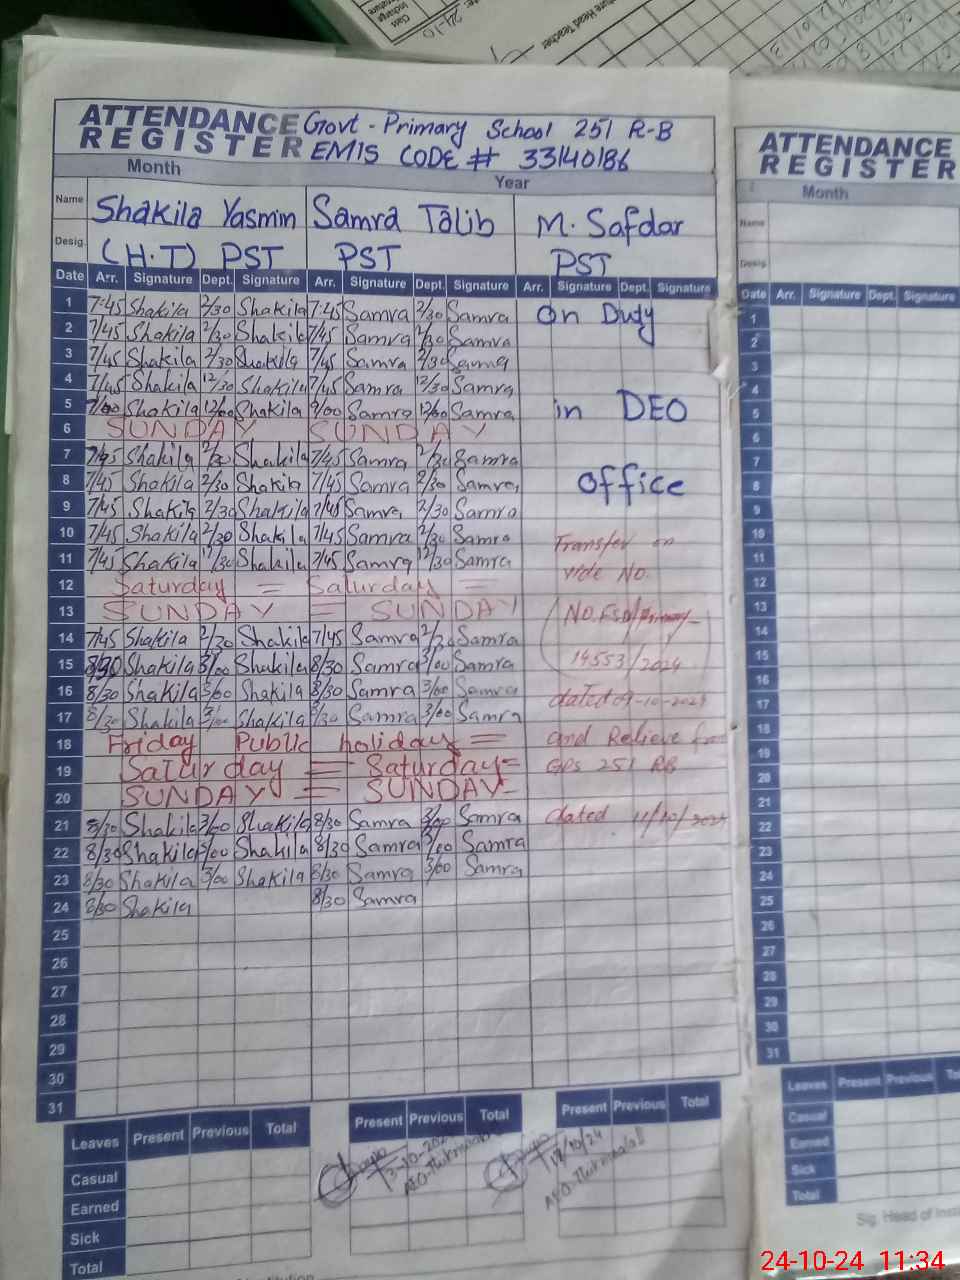 Class
Incharge
Signature
24-10
Head Teacher
ATTENDANCE Govt - Primary School 251 R-B
REGISTER EMIS CODE # 33140186
Month Year
Name Shakila Yasmin Samra Talib M. Safdar
Desig. (H.T) PST PST PST
Date Arr. Signature Dept. Signature Arr. Signature Dept. Signature Arr. Signature Dept. Signature
1 7:45 Shakila 2/30 Shakila 7:45 Samra 2/30 Samra On Duty
2 7/45 Shakila 2/30 Shakila 7/45 Samra 2/30 Samra
3 7/45 Shakila 2/30 Shakila 7/45 Samra 2/30 Samra
4 7/45 Shakila 12/30 Shakila 7/45 Samra 12/30 Samra
5 Shakila 12/00 Shakila 9/00 Samra 12/00 Samra in DEO
6 SUNDAY SUNDAY
7 7/45 Shakila 2/30 Shakila 7/45 Samra 2/30 Samra
8 7/45 Shakila 2/30 Shakila 7/45 Samra 2/30 Samra office
9 7/45 Shakila 2/30 Shakila 7/45 Samra 2/30 Samra
10 7/45 Shakila 2/30 Shakila 7/45 Samra 2/30 Samra Transfer on
11 7/45 Shakila 12/30 Shakila 7/45 Samra 12/30 Samra vide NO.
12 Saturday = Saturday =
13 SUNDAY = SUNDAY NO.FSD/Primary-
14 7/45 Shakila 2/30 Shakila 7/45 Samra 2/30 Samra
15 8/30 Shakila 3/00 Shakila 8/30 Samra 3/00 Samra 14553/2024
16 8/30 Shakila 3/00 Shakila 8/30 Samra 3/00 Samra
17 8/30 Shakila 3/00 Shakila 8/30 Samra 3/00 Samra dated 09-10-2024
18 Friday Public holiday = and Relieve from
19 Saturday = Saturday = GPS 251 RB
20 SUNDAY = SUNDAY =
21 8/30 Shakila 3/00 Shakila 8/30 Samra 3/00 Samra dated 11/10/2024
22 8/30 Shakila 3/00 Shakila 8/30 Samra 3/00 Samra
23 8/30 Shakila 3/00 Shakila 8/30 Samra 3/00 Samra
24 8/30 Shakila 8/30 Samra
25
26
27
28
29
30
31
Leaves Present Previous Total Present Previous Total Present Previous Total
Casual
Earned
Sick
Total
ATTENDANCE
REGISTER
Month
Name
Desig.
Date Arr. Signature Dept. Signature
1
2
3
4
5
6
7
8
9
10
11
12
13
14
15
16
17
18
19
20
21
22
23
24
25
26
27
28
29
30
31
Leaves Present Previous
Casual
Earned
Sick
Total
Sig. Head of
24-10-24 11:34